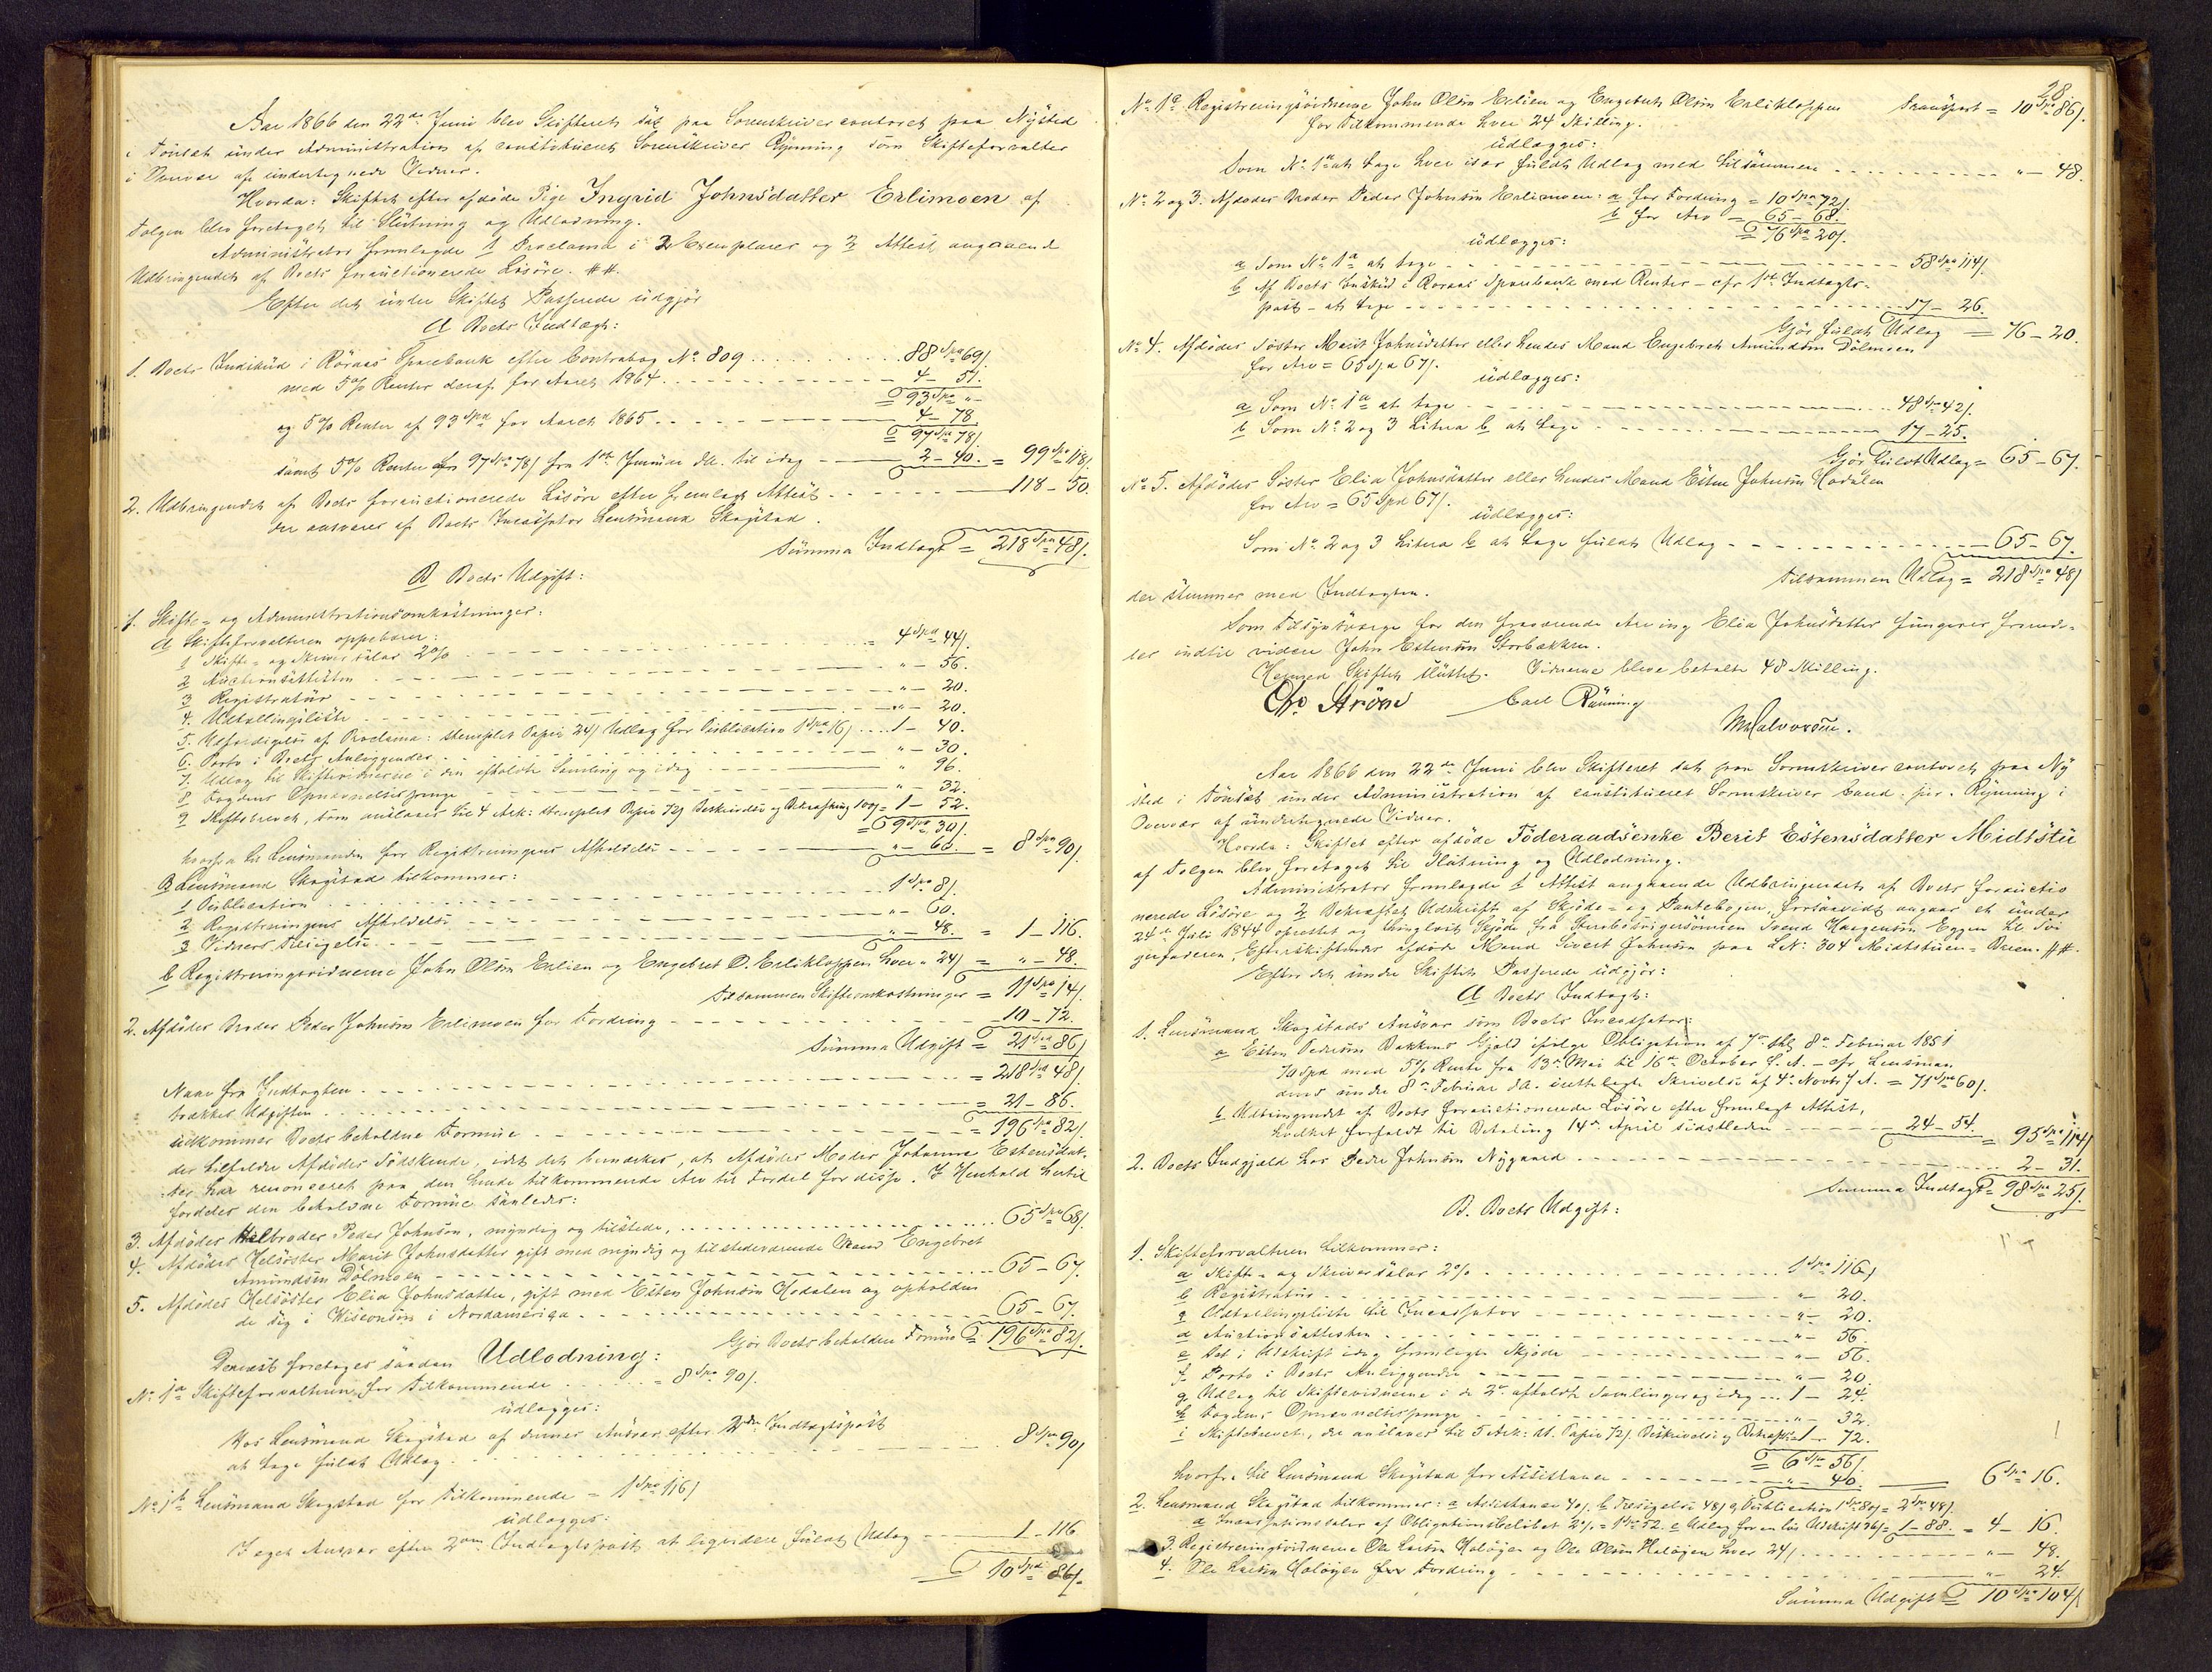 Aar 1866 den 22de Juni blev Skifteret sat paa Sorenskrivercontoret paa Nysted
i Tönset under Administration af constitueret Sorenskriver Rynning som Skifteforvalter
i Overvær af undertegnede Vidner.
Hvorda: Skiftet efter afdöde Pige Ingrid Johnsdatter Erlimoen af
Tolgen blev foretaget til Slutning og Udlodning.
Administrator fremlagde 1 Proclama i 3 Exemplarer og 2 Attest angaaende
Udbringendet af Boets forauctionerede Lösöre. ##.
Efter det under Skiftet Passerede udgjör
A Boets Indtægt:
1. Boets Indskud i Röraas Sparebank efter Contrabog No. 809 88 Spd 69 s.
med 5% Renter deraf for Aaret 1864 4 - 51.
= 93 Spd " -
og 5% Renter af 93 Spd for Aaret 1865 4 - 78
= 97 Spd 78 s.
samt 5% Renter af 97 Spd 78 s fra 1ste Januar d.A. til idag 2 - 40. = 99 Spd 118 s.
2. Udbringendet af Boets forauctionerede Lösöre efter fremlagt Attest 118 - 50.
der ansvares af Boets Incassator Lensmand Skogstad.
Summa Indtægt = 218 Spd 48 s.
B Boets Udgift:
1. Skifte- og Administrationsomkostninger:
a Skifteforvalteren oppebærer:
1 Skifte- og Skriversalær 2% = 4 Spd 44 s.
2 Auctionsattesten " - 56.
3 Registratur " - 20.
4. Udtællingsliste " - 20.
5. Udfærdigelse af Proclama: stemplet Papir 24 s Udlæg for Publication 1 Spd 16 s 1 - 40.
6. Porto i Boets Anliggender " - 30.
7. Udlæg til Skiftevidnerne i den afholdte Samling og idag " 96.
8 Fogdens Opnævnelsespenge " 32.
9 Skiftebrevet, som anslaaes til 4 Ark: stemplet Papir 72 s Beskrivelse og Bekræftning 100 s = 1 - 52.
= 9 Spd 30 s.
hvorfra til Lensmanden for Registreringens Afholdelse " - 60. = 8 Spd 90 s.
B Lensmand Skogstad tilkommer:
1 Publication 1 Spd 8 s.
2 Registreringens Afholdelse " - 60.
3 Vidners Tilsigelse " - 48. = 1 - 116.
b Registreringsvidnerne John Olsen Erlien og Engebret O. Erlikloppen hver " 24 s = " - 48.
tilsammen Skifteomkostninger = 11 Spd 14 s.
2. Afdödes Broder Peder Johnsen Erlimoen for Fordring 10 - 72.
Summa Udgift = 21 Spd 86 s
Naar fra Indtægten = 218 Spd 48 s.
trækkes Udgiften = 21 - 86.
udkommer Boets beholdne Formue = 196 Spd 82 s.
der tilfalder Afdödes Södskende, idet det bemærkes, at Afdödes Moder Johanna Estensdat-
ter har renonceret paa den hende tilkommende Arv til Fordel for disse. I Henhold hertil
fordeles den beholdne Formue saaledes:
3. Afdödes Helbroder Peder Johnsen, myndig og tilstede, 65 Spd 68 s.
4. Afdödes Helsöster Marit Johnsdatter gift med myndig og tilstedeværende Mand Engebret
Amundsen Dölmoen 65 - 67.
5. Afdödes Helsöster Elia Johnsdatter, gift med Esten Johnsen Hodalen og opholden
de sig i Wisconsin i Nordamerika 65 - 67.
Gjör Boets beholdne Formue = 196 Spd 82 s.
Dernæst foretoges saadan Udlodning:
No. 1a Skifteforvalteren for Tilkommende = 8 Spd 90 s.
udlægges:
Hos Lensmand Skogstad af dennes Ansvar efter 2den Indtægtspost
at tage fuldt Udlæg 8 Spd 90 s
No. 1b Lensmand Skogstad for Tilkommende = 1 Spd 116 s
udlægges:
I eget Ansvar efter 2den Indtægtspost at liqvidere fuldt Udlæg 1 - 116
= 10 Spd 86 s.
28.
No. 1c. Registreringsvidnerne John Olsen Erlien og Engebret Olsen Erlikloppen Transport = 10 Spd 86 s.
for Tilkommende hver 24 Skilling.
udlægges:
Som No. 1a at tage hver især fuldt Udlæg med tilsammen " - 48.
No. 2 og 3. Afdödes Broder Peder Johnsen Erlimoen: a for Fordring = 10 Spd 72 s.
b for Arv = 65 - 68.
= 76 Spd 20 s.
udlægges:
a Som No. 1a at tage 58 Spd 114 s.
b Af Boets Indskud i Röraas Sparebank med Renter - cfr 1ste Indtægts-
post - at tage 17 - 26.
Gjör fuldt Udlæg = 76 - 20.
No. 4. Afdödes Söster Marit Johnsdatter eller hendes Mand Engebret Amundsen Dölmoen
for Arv = 65 Spd 67 s.
udlægges:
a Som No. 1a at tage 48 Spd 42 s.
b Som No. 2 og 3 Litera b at tage 17 - 25.
Gjör fuldt Udlæg = 65 - 67.
No. 5. Afdödes Söster Elia Johnsdatter eller hendes Mand Esten Johnsen Hodalen
for Arv = 65 Spd 67 s.
udlægges:
Som No. 2 og 3 Litera b at tage fuldt Udlæg 65 - 67.
tilsammen Udlæg = 218 Spd 48 s
der stemmer med Indtægten.
Som Tilsynsværge for den fraværende Arving Elia Johnsdatter fungerer fremde-
les indtil videre John Estensen Storbækken.
Hermed Skiftet sluttet. Vidnerne bleve betalte 48 Skilling.
Chr. Ström Carl Rynning
M Halvorsen.
Aar 1866 den 22de Juni blev Skifteret sat paa Sorenskrivercontoret paa Ny
sted i Tönset under Administration af constitueret Sorenskriver Cand. jur. Rynning i
Overvær af undertegnede Vidner.
Hvorda: Skiftet efter afdöde Föderaadsenke Berit Estensdatter Midtstu
af Tolgen blev foretaget til Slutning og Udlodning.
Administrator fremlagde 1 Attest angaaende Udbringendet af Boets forauctio
nerede Lösöre og 2 Bekræftet Udskrift af Skjöde- og Pantebogen, forsaavidt angaar et under
24de Juli 1844 oprettet og thinglæst Skjöde fra Svend Haagensen Eggen til Svi
gerfaderen, Efterskiftendes afdöde Mand Sivert Johnsen paa L.No. 304 Midtstuen-Vreen. ##.
Efter det under Skiftet Passerede udgjör:
A Boets Indtægt:
1. Lensmand Skogstads Ansvar som Boets Incassator:
a Esten Pedersen Bakkens Gjæld ifölge Obligation af 7de thl 8de Februar 1851
70 Spd med 5% Rente fra 13de Mai til 16de October f. A. - cfr Lensman
dens under 8de Februar d.A. Skrivelse af 4de Novbr f. A. = 71 Spd 60 s.
b Udbringendet af Boets forauctionerede Lösöre efter fremlagt Attest,
hvilket forfaldt til Betaling 14de April sidstleden 24 - 54. = 95 Spd 114 s
2. Boets Indgjæld hos Peder Johnsen Nygaard 2 - 31.
Summa Indtægt = 98 Spd 25 s.
B. Boets Udgift:
1. Skifteforvalteren tilkommer:
a Skifte- og Skriversalær 2% 1 Spd 116 s
b Registratur " - 20.
c Udtællingsliste til Incassator " - 20.
d Auctionsattesten " - 56.
e Det i Udskrift idag fremlagte Skjöde " - 56.
f Porto i Boets Anliggender " - 20.
g Udlæg til Skiftevidnerne i de 2de afholdte Samlinger og idag 1 - 24.
h Fogdens Opnævnelsespenge " - 32.
i Skiftebrevet, der anslaaes til 5 Ark: st. Papir 72 s. Beskrivelse og Bekræftn. 1 - 72.
= 6 Spd 56 s.
hvorfra til Lensmand Skogstad for Assistance " - 40. 6 Spd 16.
2. Lensmand Skogstad tilkommer: a Assistance 40 s. b Tilsigelse 48 s c Publication 1 Spd 80 s = 2 Spd 48 s.
d Incassationssalær af Obligationsbelöbet 2% = 1 Spd 52. e Udlæg for en lös Udskrift 36 s = 1 - 88. = 4 - 16.
3. Registreringsvidnerne Ole Larsen Holöyen og Ole Olsen Holöyen hver 24 s. " - 48.
4. Ole Larsen Holöyen for Fordring " - 24.
Summa Udgift = 10 Spd 104 s